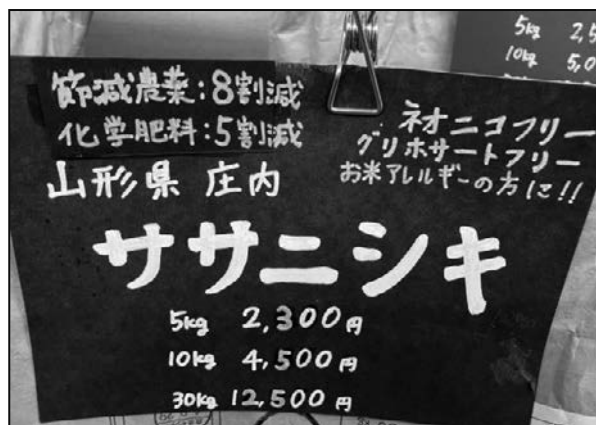 節減農薬:8割減
化学肥料:5割減
山形県 庄内
ネオニコフリー
グリホサートフリー
お米アレルギーの方に!!
ササニシキ
5kg 2,300円
10kg 4,500円
30kg 12,500円
5kg 2,5
10kg 5,0